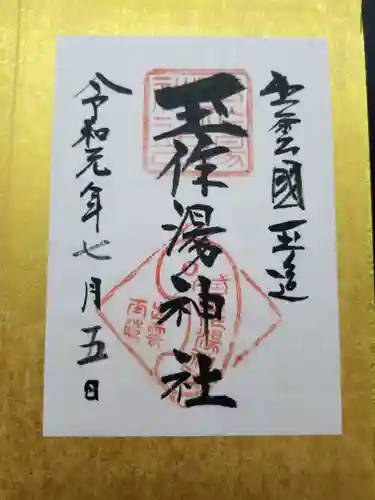 出雲國玉造
玉作湯神社
令和元年七月五日